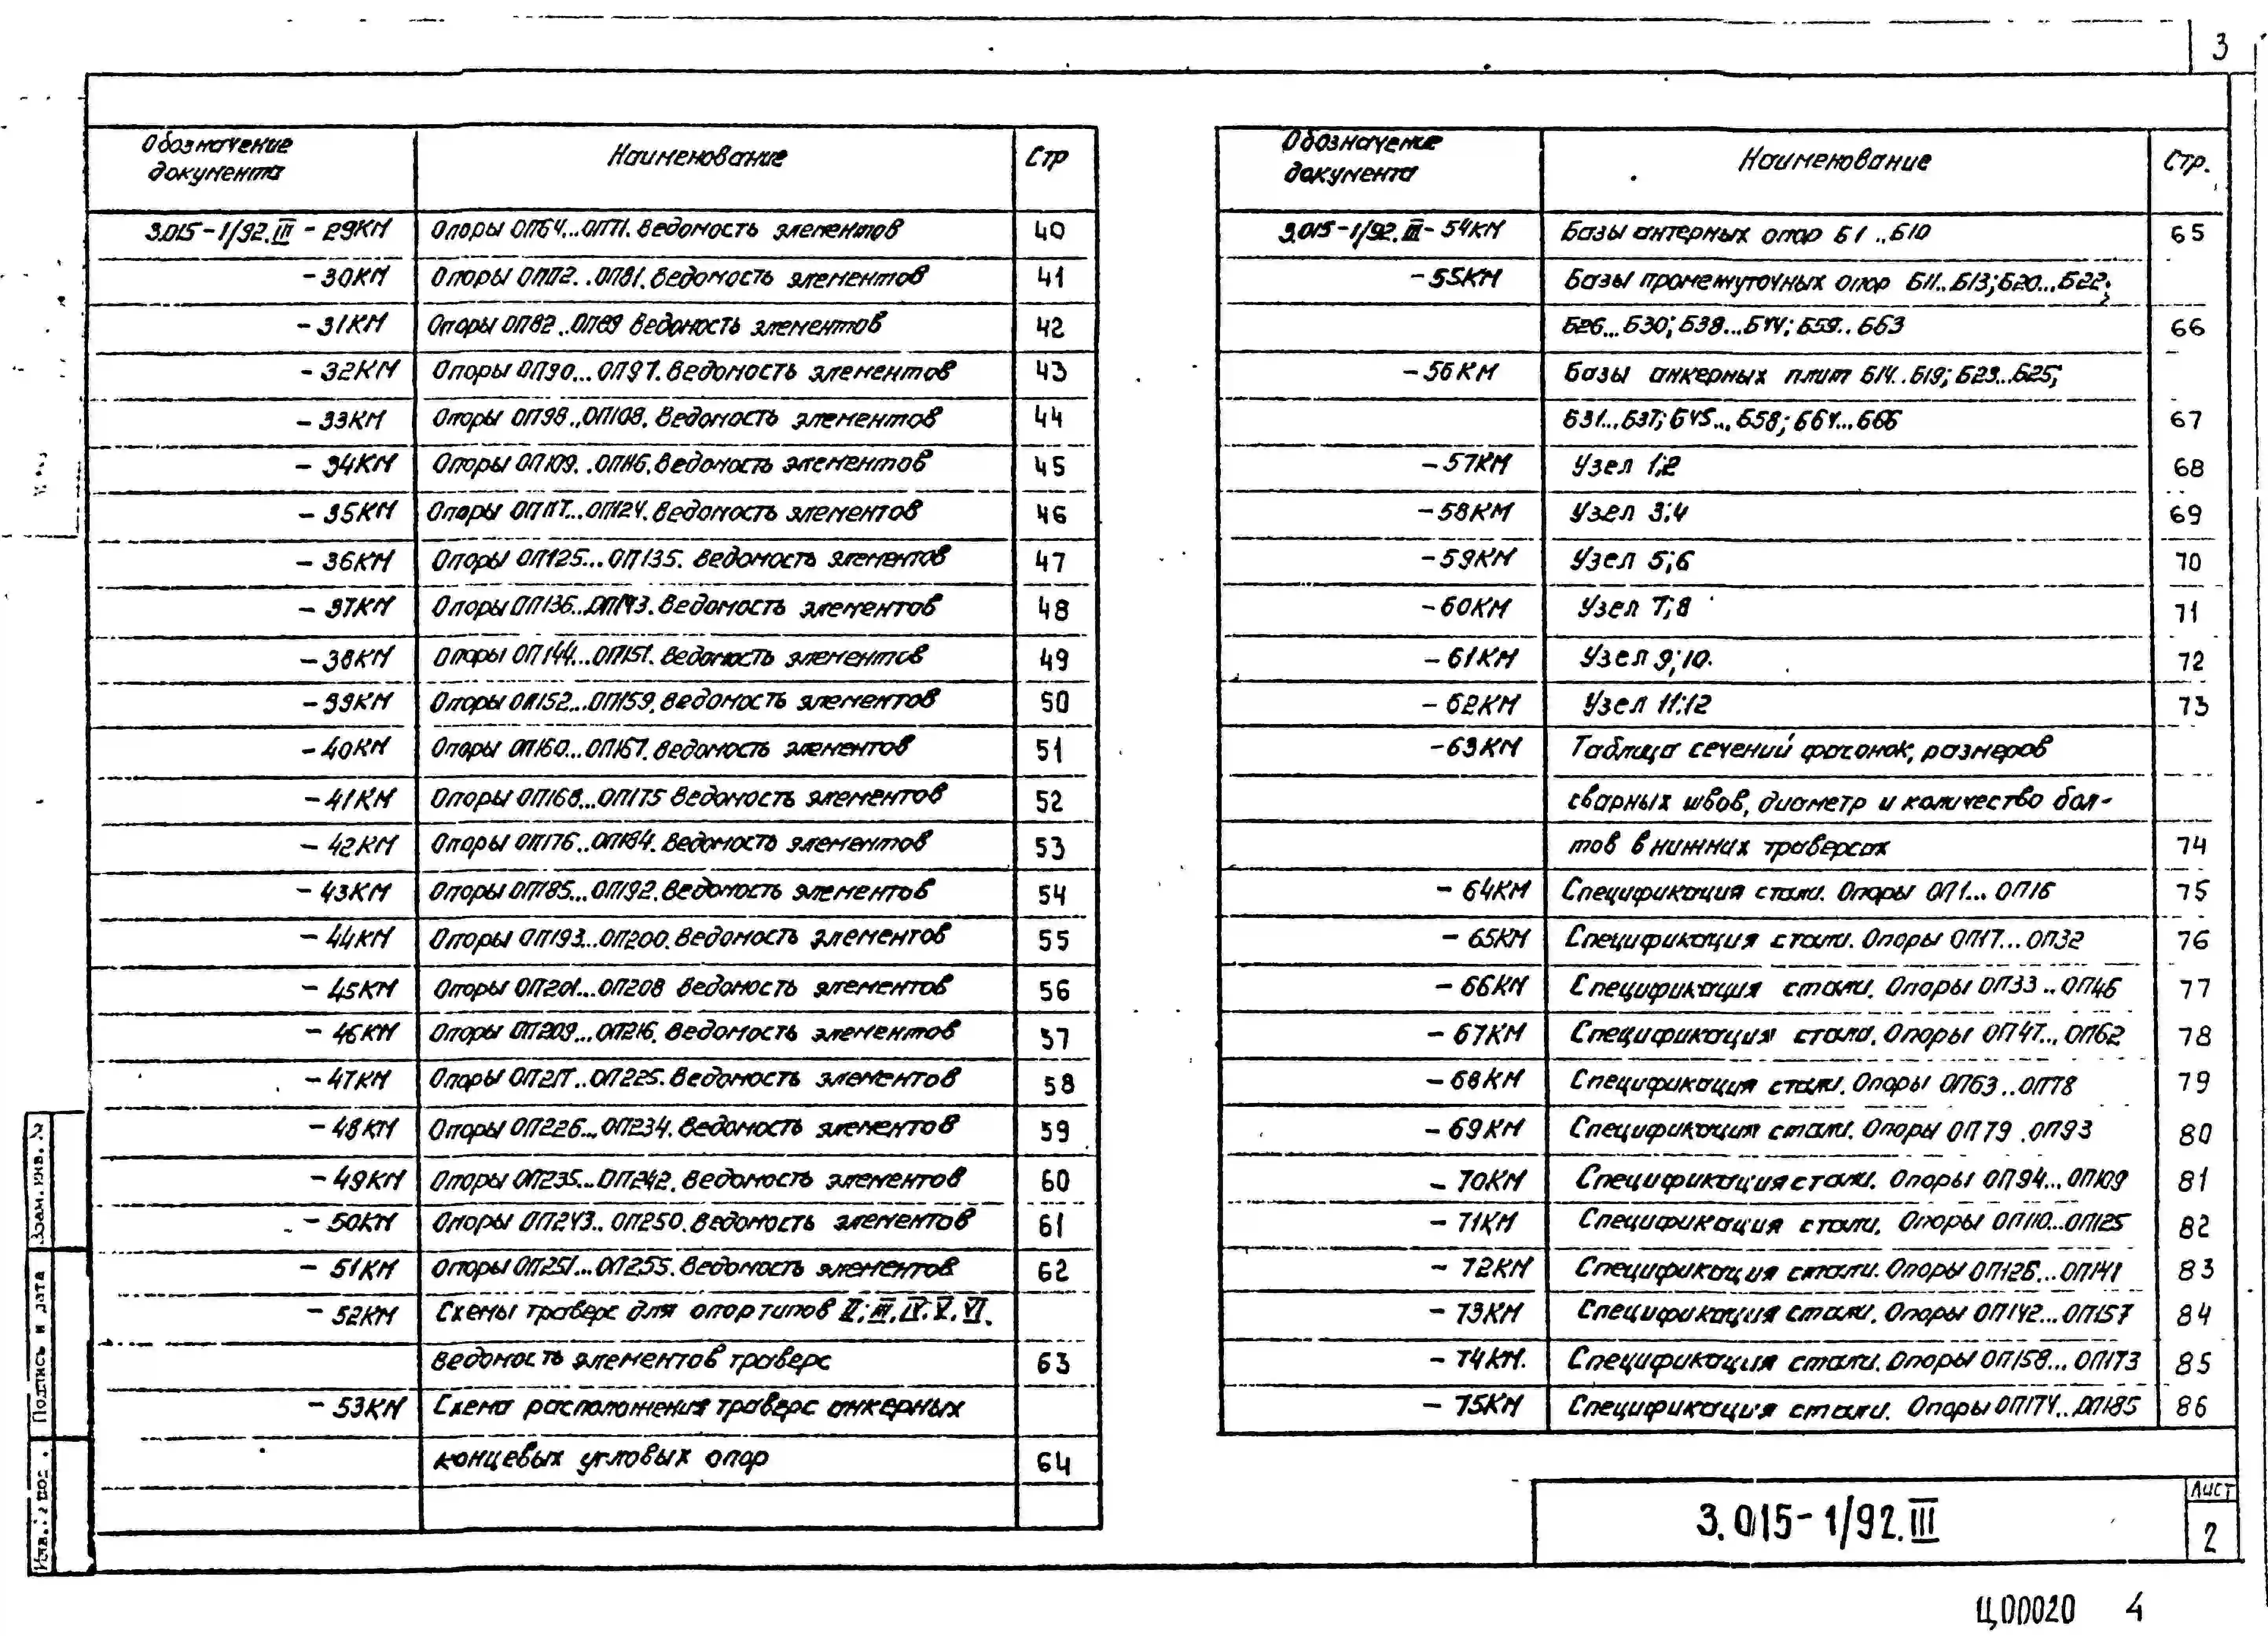 3
Обозначение документа Наименование Стр
3.015-1/92.III - 29КМ Опоры ОП64...ОП71. Ведомость элементов 40
- 30КМ Опоры ОП72..ОП81. Ведомость элементов 41
- 31КМ Опоры ОП82..ОП89 Ведомость элементов 42
- 32КМ Опоры ОП90...ОП97. Ведомость элементов 43
- 33КМ Опоры ОП98..ОП108. Ведомость элементов 44
- 34КМ Опоры ОП109..ОП116. Ведомость элементов 45
- 35КМ Опоры ОП117...ОП124. Ведомость элементов 46
- 36КМ Опоры ОП125...ОП135. Ведомость элементов 47
- 37КМ Опоры ОП136...ОП143. Ведомость элементов 48
- 38КМ Опоры ОП144...ОП151. Ведомость элементов 49
- 39КМ Опоры ОП152...ОП159. Ведомость элементов 50
- 40КМ Опоры ОП160...ОП167. Ведомость элементов 51
- 41КМ Опоры ОП168...ОП175 Ведомость элементов 52
- 42КМ Опоры ОП176...ОП184. Ведомость элементов 53
- 43КМ Опоры ОП185...ОП192. Ведомость элементов 54
- 44КМ Опоры ОП193...ОП200. Ведомость элементов 55
- 45КМ Опоры ОП201...ОП208 Ведомость элементов 56
- 46КМ Опоры ОП209...ОП216. Ведомость элементов 57
- 47КМ Опоры ОП217..ОП225. Ведомость элементов 58
- 48КМ Опоры ОП226...ОП234. Ведомость элементов 59
- 49КМ Опоры ОП235...ОП242. Ведомость элементов 60
- 50КМ Опоры ОП243..ОП250. Ведомость элементов 61
- 51КМ Опоры ОП251...ОП255. Ведомость элементов 62
- 52КМ Схемы траверс для опор типов II; III, IV, V, VI.
Ведомость элементов траверс 63
- 53КМ Схема расположения траверс анкерных
концевых угловых опор 64
Обозначение документа Наименование Стр.
3.015-1/92.III - 54КМ Базы анкерных опор Б1...Б10 65
- 55КМ Базы промежуточных опор Б11..Б13; Б20...Б22;
Б26...Б30; Б38...Б44; Б59..Б63 66
- 56КМ Базы анкерных плит Б14..Б19; Б23...Б25;
Б31...Б37; Б45...Б58; Б64...Б66 67
- 57КМ Узел 1;2 68
- 58КМ Узел 3;4 69
- 59КМ Узел 5;6 70
- 60КМ Узел 7;8 71
- 61КМ Узел 9;10. 72
- 62КМ Узел 11;12 73
- 63КМ Таблица сечений фасонок, размеров
сварных швов, диаметр и количество бол-
тов в нижних траверсах 74
- 64КМ Спецификация стали. Опоры ОП1...ОП16 75
- 65КМ Спецификация стали. Опоры ОП17...ОП32 76
- 66КМ Спецификация стали. Опоры ОП33..ОП46 77
- 67КМ Спецификация стали. Опоры ОП47...ОП62 78
- 68КМ Спецификация стали. Опоры ОП63..ОП78 79
- 69КМ Спецификация стали. Опоры ОП79 .ОП93 80
- 70КМ Спецификация стали. Опоры ОП94...ОП109 81
- 71КМ Спецификация стали. Опоры ОП110...ОП125 82
- 72КМ Спецификация стали. Опоры ОП126...ОП141 83
- 73КМ Спецификация стали. Опоры ОП142...ОП157 84
- 74КМ. Спецификация стали. Опоры ОП158...ОП173 85
- 75КМ Спецификация стали. Опоры ОП174..ОП185 86
Взам. инв.
Подпись и дата
3.015-1/92.III
Лист
2
Ц00020 4